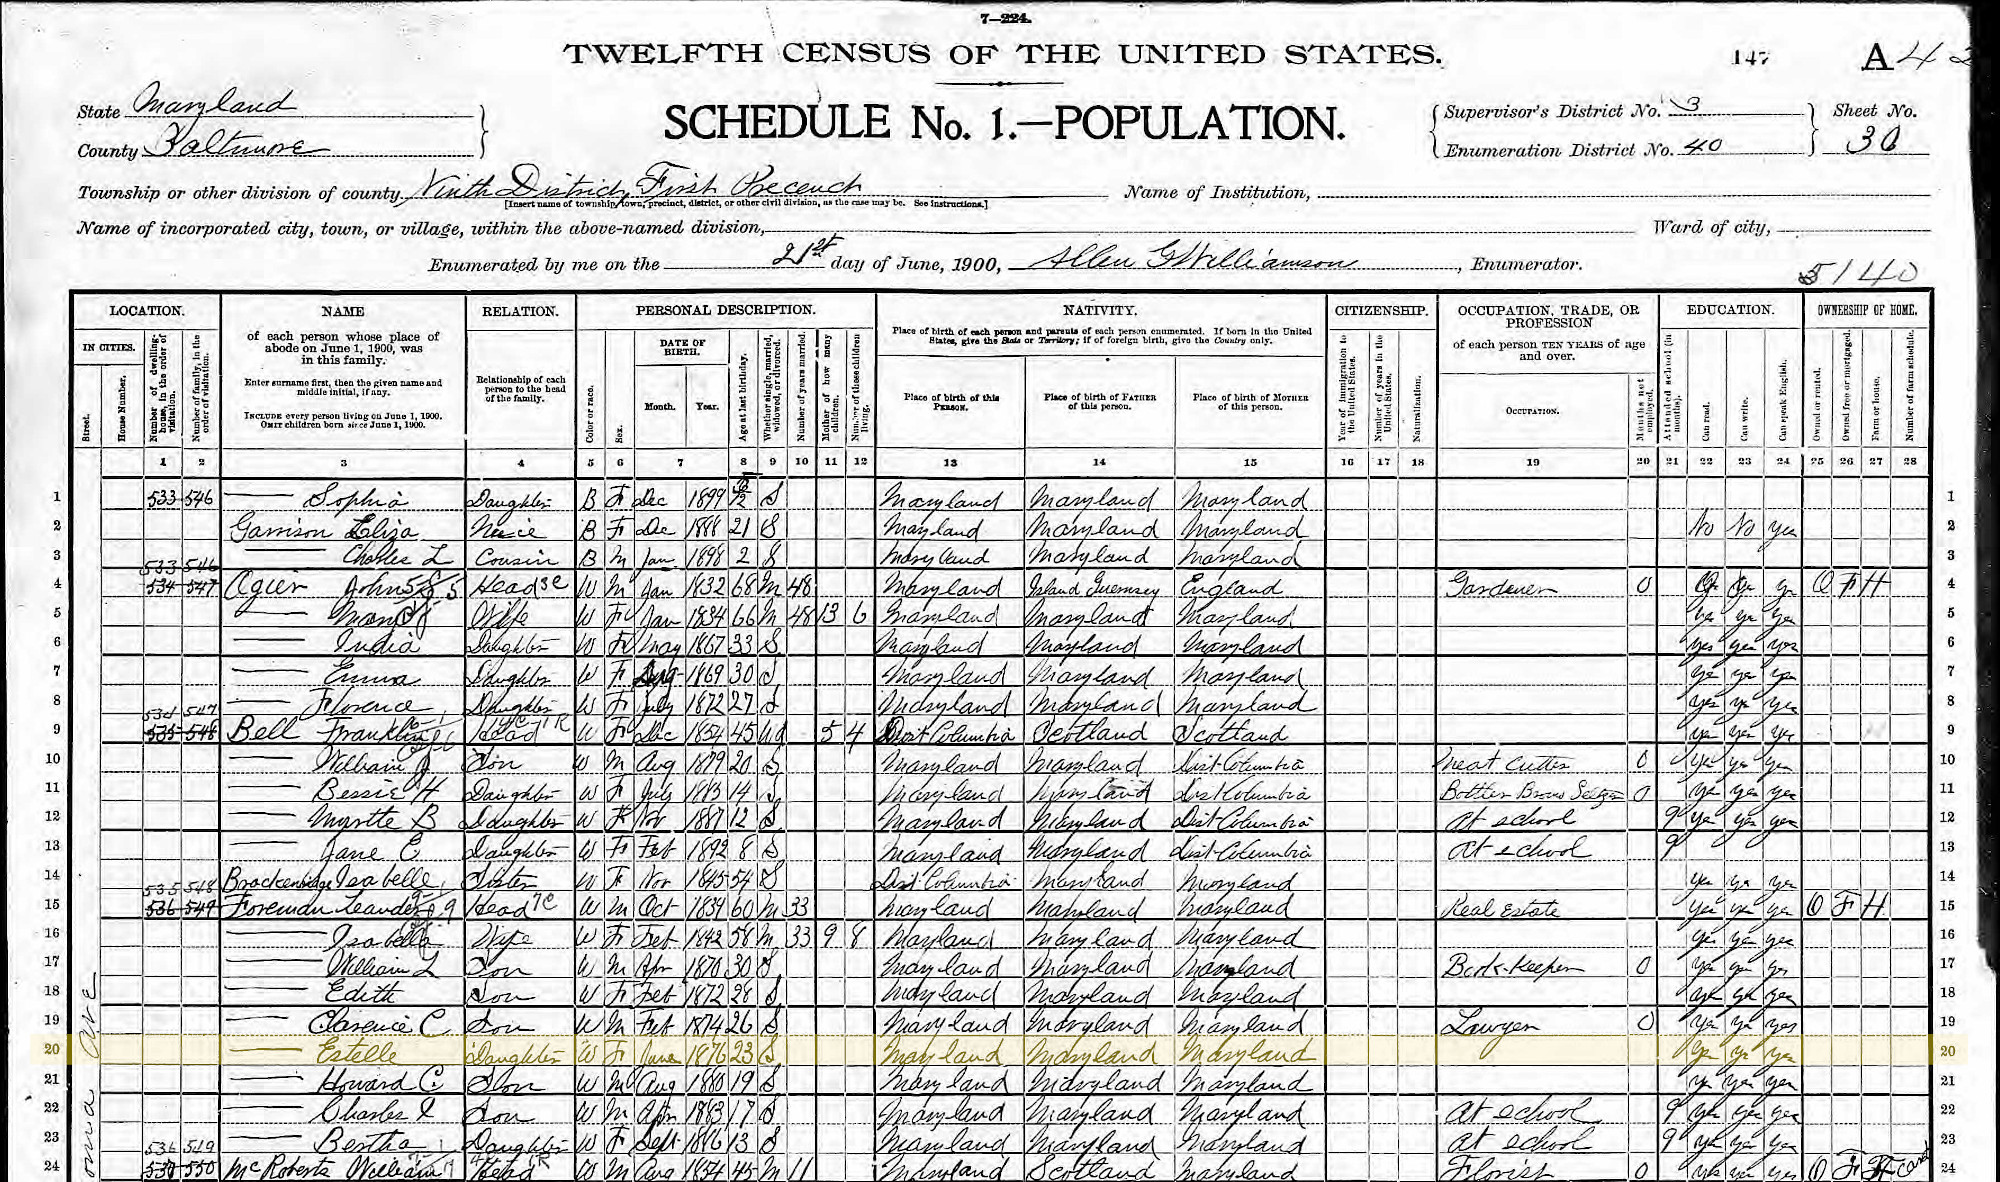 7—224.
TWELFTH CENSUS OF THE UNITED STATES.
147 A 42
State Maryland
County Baltimore
SCHEDULE No. 1.—POPULATION.
Supervisor's District No. 3
Enumeration District No. 40
Sheet No.
30
Township or other division of county, Ninth District, First Precinct
[Insert name of township, town, precinct, district, or other civil division, as the case may be. See instructions.]
Name of Institution,
Name of incorporated city, town, or village, within the above-named division,
Ward of city,
Enumerated by me on the 21st day of June, 1900, Allen G Williamson, Enumerator.
5140
LOCATION. NAME RELATION. PERSONAL DESCRIPTION. NATIVITY. CITIZENSHIP. OCCUPATION, TRADE, OR PROFESSION EDUCATION. OWNERSHIP OF HOME.
IN CITIES.
Street.
House Number.
Number of dwelling-house, in the order of visitation.
Number of family, in the order of visitation.
of each person whose place of abode on June 1, 1900, was in this family.
Enter surname first, then the given name and middle initial, if any.
INCLUDE every person living on June 1, 1900.
OMIT children born since June 1, 1900.
Relationship of each person to the head of the family.
Color or race.
Sex.
DATE OF BIRTH.
Month.
Year.
Age at last birthday.
Whether single, married, widowed, or divorced.
Number of years married.
Mother of how many children.
Number of these children living.
Place of birth of each person and parents of each person enumerated. If born in the United States, give the State or Territory; if of foreign birth, give the Country only.
Place of birth of this PERSON.
Place of birth of FATHER of this person.
Place of birth of MOTHER of this person.
Year of immigration to the United States.
Number of years in the United States.
Naturalization.
of each person TEN YEARS of age and over.
OCCUPATION.
Months not employed.
Attended school (in months).
Can read.
Can write.
Can speak English.
Owned or rented.
Owned free or mortgaged.
Farm or house.
Number of farm schedule.
1 2 3 4 5 6 7 8 9 10 11 12 13 14 15 16 17 18 19 20 21 22 23 24 25 26 27 28
1 533 546 Sophia Daughter B F Dec 1899 S Maryland Maryland Maryland 1
2 Garrison Eliza Neice B F Dec 1888 21 S Maryland Maryland Maryland No No yes 2
3 533 546 Charles L Cousin B M Jan 1898 2 S Maryland Maryland Maryland 3
4 534 547 Agier John S Head W M Jan 1832 68 M 48 Maryland Island Guernsey England Gardener 0 O F H 4
5 Mary J Wife W F Jan 1834 66 M 48 13 6 Maryland Maryland Maryland yes yes yes 5
6 India Daughter W F May 1867 33 S Maryland Maryland Maryland yes yes yes 6
7 Emma Daughter W F Aug 1869 30 S Maryland Maryland Maryland yes yes yes 7
8 534 547 Florence Daughter W F July 1872 27 S Maryland Maryland Maryland yes yes yes 8
9 535 548 Bell Franklin Head W F Dec 1854 45 Wd 5 4 Dist Columbia Scotland Scotland yes yes yes 9
10 William J Son W M Aug 1879 20 S Maryland Maryland Dist Columbia Meat Cutter 0 yes yes yes 10
11 Bessie H Daughter W F July 1885 14 S Maryland Maryland Dist Columbia Bottler Bromo Seltzer 0 yes yes yes 11
12 Myrtle B Daughter W F Nov 1887 12 S Maryland Maryland Dist Columbia At school 9 yes yes yes 12
13 Jane E Daughter W F Feb 1892 8 S Maryland Maryland Dist Columbia At school 9 13
14 535 548 Brackenbridge Isabelle Sister W F Nov 1845 54 S Dist Columbia Maryland Maryland yes yes yes 14
15 536 549 Foreman Leander Head W M Oct 1839 60 M 33 Maryland Maryland Maryland Real Estate yes yes yes O F H 15
16 Isabella Wife W F Feb 1842 58 M 33 9 8 Maryland Maryland Maryland yes yes yes 16
17 William L Son W M Apr 1870 30 S Maryland Maryland Maryland Book-Keeper 0 yes yes yes 17
18 Edith Son W F Feb 1872 28 S Maryland Maryland Maryland yes yes yes 18
19 Clarence C Son W M Feb 1874 26 S Maryland Maryland Maryland Lawyer 0 yes yes yes 19
20 Estelle Daughter W F June 1876 23 S Maryland Maryland Maryland yes yes yes 20
21 Howard C Son W M Aug 1880 19 S Maryland Maryland Maryland yes yes yes 21
22 Charles I Son W M Apr 1883 17 S Maryland Maryland Maryland At school 9 yes yes yes 22
23 536 549 Bertha Daughter W F Sept 1886 13 S Maryland Maryland Maryland At school 9 yes yes yes 23
24 550 McRoberts William Head W M Aug 1854 45 M 11 Maryland Scotland Maryland Florist 0 yes yes yes O F 24